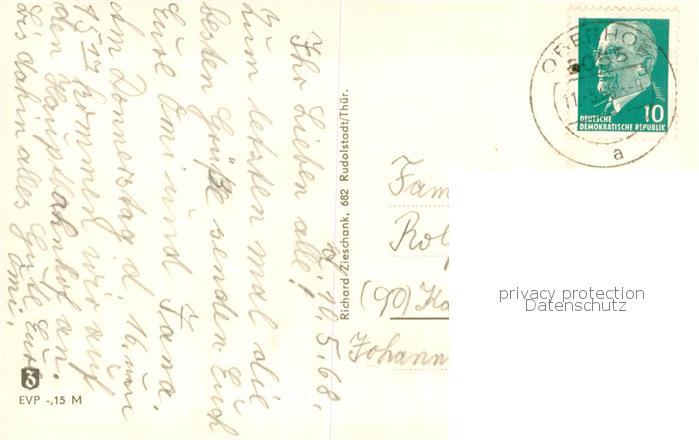 d. 14.5.68.
Ihr Lieben alle!
Zum letzten mal die
besten Grüße senden Euch
Eure Omi und Jana.
Am Donnerstag d. 16. um
15 17 kommen wir auf
den Hauptbahnhof an.
Bis dahin alles Gute Eure
Omi.
EVP -,15 M
Richard Zieschank, 682 Rudolstadt/Thür.
OBERHO
6055
11
a
10
DEUTSCHE
DEMOKRATISCHE REPUBLIK
Fam
Rol
(90) Ka
Johann
privacy protection
Datenschutz